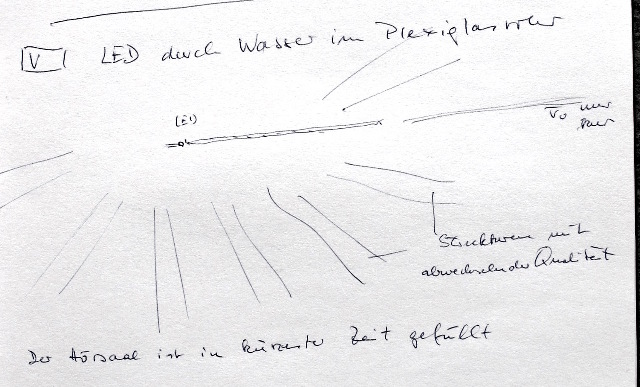 V LED durch Wasser im Plexiglasrohr
LED
v₀ nur
Strukturen mit
abwechselnder Qualität
Der Hörsaal ist in kürzester Zeit gefüllt